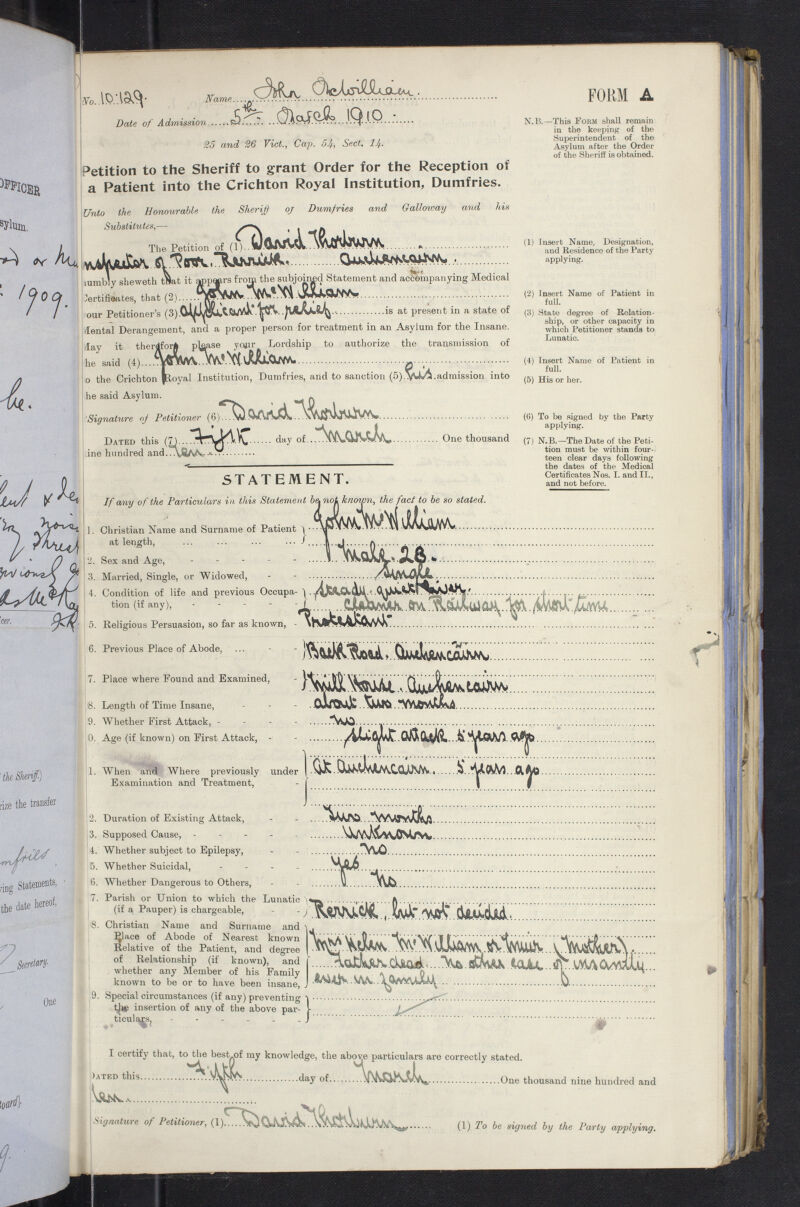 OFFICER
sylum.
1909.
he.
the Sheriff.)
rize the transfer
mfries
ing Statements,
the date hereof,
Secretary.
One
oard).
No. 10.129. Name John McWilliam. FORM A
Date of Admission 5th March 1910.
25 and 26 Vict., Cap. 54, Sect. 14.
N.B.—This FORM shall remain
in the keeping of the
Superintendent of the
Asylum after the Order
of the Sheriff is obtained.
Petition to the Sheriff to grant Order for the Reception of
a Patient into the Crichton Royal Institution, Dumfries.
Unto the Honourable the Sheriff of Dumfries and Galloway and his
Substitutes,—
The Petition of (1) David Thorburn
nspector of Poor. Rerrick. Auchencairn.
(1) Insert Name, Designation,
and Residence of the Party
applying.
umbly sheweth that it appears from the subjoined Statement and accompanying Medical
Certificates, that (2) John McWilliam
our Petitioner's (3) Applicant for relief is at present in a state of
Mental Derangement, and a proper person for treatment in an Asylum for the Insane.
(2) Insert Name of Patient in
full.
(3) State degree of Relation-
ship, or other capacity in
which Petitioner stands to
Lunatic.
May it therefore please your Lordship to authorize the transmission of
he said (4) John McWilliam
o the Crichton Royal Institution, Dumfries, and to sanction (5) his admission into
he said Asylum.
(4) Insert Name of Patient in
full.
(5) His or her.
Signature of Petitioner (6) David Thorburn
(6) To be signed by the Party
applying.
DATED this (7) Fifth day of March One thousand
nine hundred and ten.
(7) N.B.—The Date of the Peti-
tion must be within four-
teen clear days following
the dates of the Medical
Certificates Nos. I. and II.,
and not before.
STATEMENT.
If any of the Particulars in this Statement be not known, the fact to be so stated.
1. Christian Name and Surname of Patient John McWilliam
at length, ... ... ... ...
2. Sex and Age, - - - - - Male. 28.
3. Married, Single, or Widowed, - - Single
4. Condition of life and previous Occupa- Steady quiet liver.
tion (if any), - - - - - Cleaner on Railway for short time
5. Religious Persuasion, so far as known, - Protestant
6. Previous Place of Abode, ... - - Back Road. Auchencairn
7. Place where Found and Examined, - Mill House. Auchencairn
8. Length of Time Insane, - - - about two months
9. Whether First Attack, - - - - no
0. Age (if known) on First Attack, - - slight attack 5 years ago
1. When and Where previously under At Auchencairn. 5 years ago
Examination and Treatment, -
2. Duration of Existing Attack, - - Two months
3. Supposed Cause, - - - - - Unknown
4. Whether subject to Epilepsy, - - No
5. Whether Suicidal, - - - - yes
6. Whether Dangerous to Others, - - No
7. Parish or Union to which the Lunatic
(if a Pauper) is chargeable, - - Rerrick, but not decided.
8. Christian Name and Surname and
Place of Abode of Nearest known Mrs Helen McWilliam or Muir (Mother).
Relative of the Patient, and degree
of Relationship (if known), and Father dead. No other case of insanity
whether any Member of his Family
known to be or to have been insane, ever in family
9. Special circumstances (if any) preventing
the insertion of any of the above par-
ticulars, - - - - - -
I certify that, to the best of my knowledge, the above particulars are correctly stated.
DATED this Fifth day of March One thousand nine hundred and
ten.
Signature of Petitioner, (1) David Thorburn (1) To be signed by the Party applying.